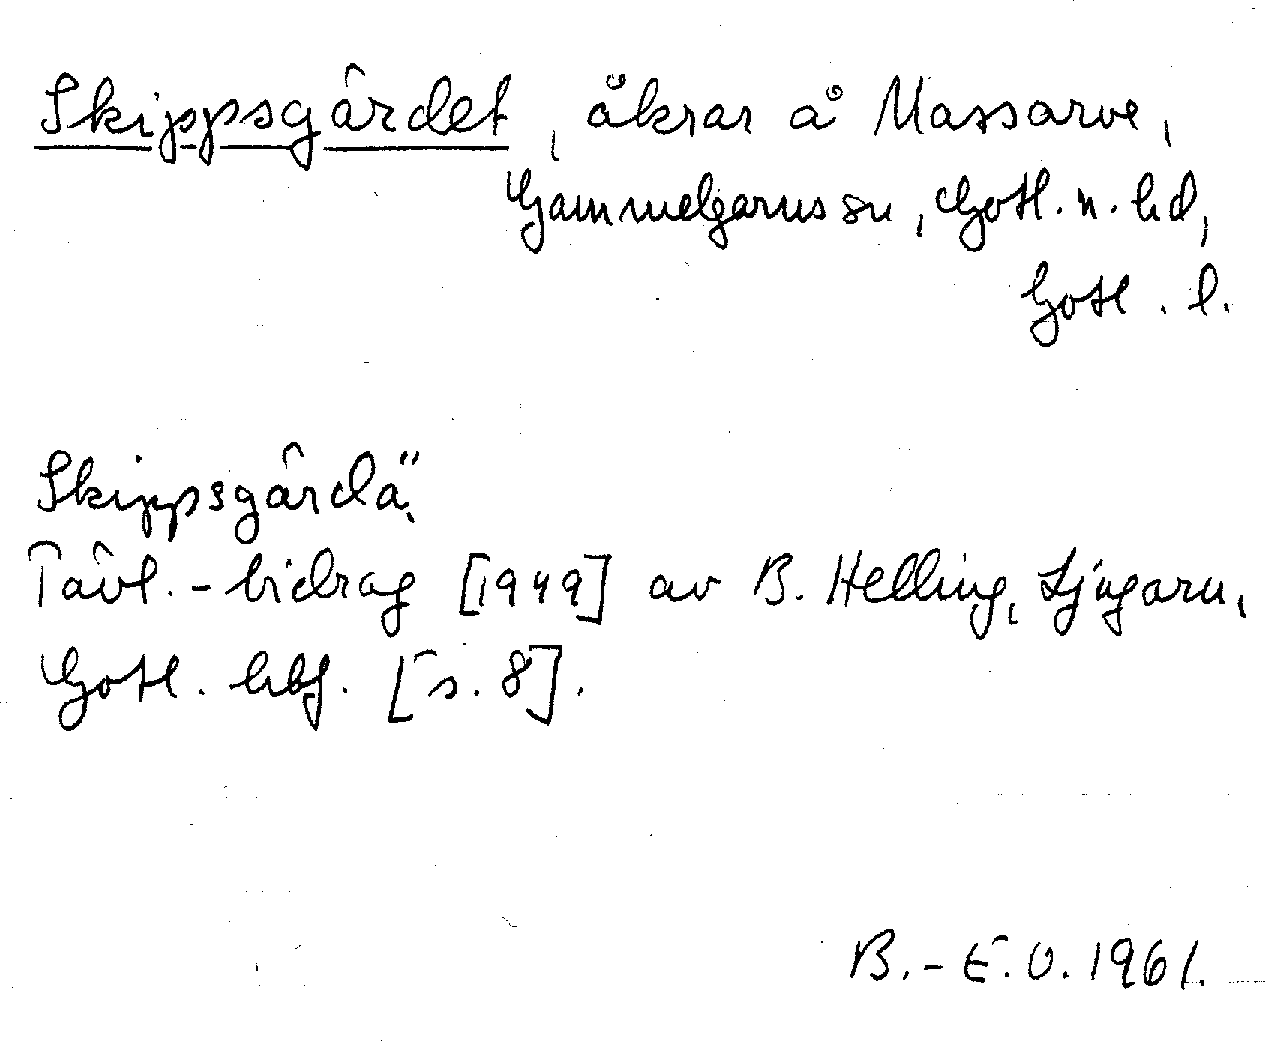 Skippsgärdet, åkrar å Massarve,
Gammelgarns sn, Gotl. n. hd,
Gotl. l.
Skippsgârdä.
Tävl.-bidrag [1949] av B. Helling, Ljugarn,
Gotl. hbf. [s. 8].
B.-E. O. 1961.